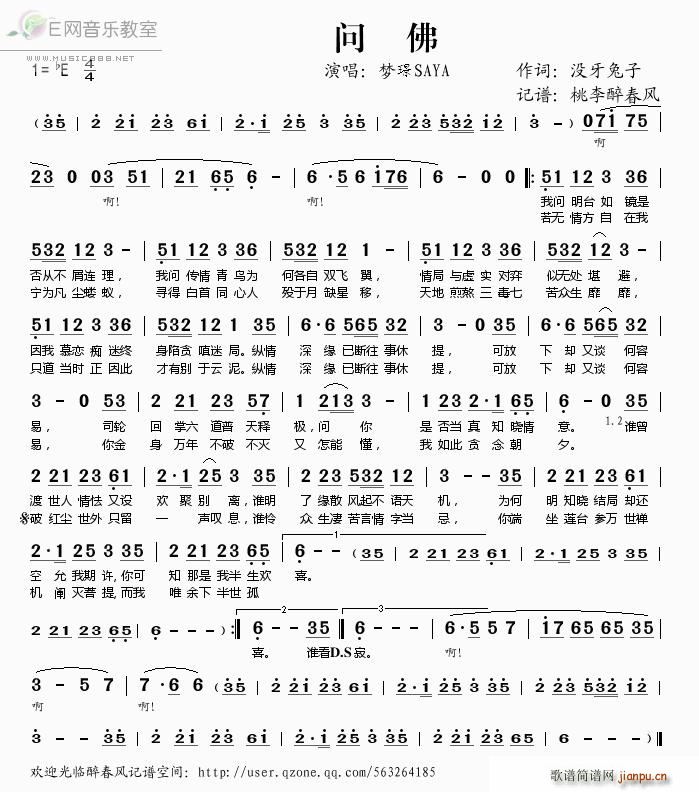 E网音乐教室
WWW.MUSIC888.NET
问 佛
1=♭E 4/4
演唱：梦璟SAYA
作词：没牙兔子
记谱：桃李醉春风
(35 | 2 21 23 61 | 2·1 25 3 35 | 2 23 532 12 | 3 -) 071 75 |
啊
23 0 03 51 | 21 65 6 - | 6·5 6 176 | 6 - 0 0 |: 51 12 3 36 |
啊! 啊! 我问 明台 如 镜是
若无 情方 自 在我
532 12 3 - | 51 12 3 36 | 532 12 1 - | 51 12 3 36 | 532 12 3 - |
否从不 屑连 理， 我问 传情 青 鸟为 何各自 双飞 翼， 情局 与虚 实 对弈 似无处 堪 避，
宁为凡 尘蝼 蚁， 寻得 白首 同 心人 殁于月 缺星 移， 天地 煎熬 三 毒七 苦众生 靡 靡，
51 12 3 36 | 532 12 1 35 | 6·6 565 35 | 3 - 0 35 | 6·6 565 32 |
因我 慕恋 痴 迷终 身陷贪 嗔迷 局。纵情 深 缘 已断往 事休 提， 可放 下 却 又谈 何容
只道 当时 正 因此 才有别 于云 泥。纵情 深 缘 已断往 事休 提， 可放 下 却 又谈 何容
3 - 0 53 | 2 21 23 57 | 1 213 - | 123 2·1 65 | 6 - 0 35 |
易， 司轮 回 掌六 道普 天释 极，问 你 是 否当 真 知 晓情 意。 谁曾
易， 你金 身 万年 不破 不灭 又 怎能 懂， 我 如此 贪 念 朝 夕。
1.2
2 21 23 61 | 2·1 25 3 35 | 2 23 532 12 | 3 - - 35 | 2 21 23 61 |
渡 世人 情怯 又设 欢 聚 别 离，谁明 了 缘散 风起不 语天 机， 为何 明 知晓 结局 却还
破 红尘 世外 只留 一 声叹 息，谁怜 众 生凄 苦言情 字当 忌， 你端 坐 莲台 参万 世禅
2·1 25 3 35 | 2 21 23 65 | 6 - - (35 | 2 21 23 61 | 2·1 25 3 35 |
空 允我 期 许，你可 知 那是 我半 生欢 喜。
机 阐 灭菩 提，而我 唯 余下 半世 孤
1
2 21 23 65 | 6 - - -) :| 6 - - 35 | 6 - - - | 6·5 5 7 | 1 765 65 35 |
2. 3.
喜。 谁看D.S 寂。 啊!
3 - 5 7 | 7·6 6 (35 | 2 21 23 61 | 2·1 25 3 35 | 2 23 532 12 |
啊 啊!
3 - - 35 | 2 21 23 61 | 2·1 25 3 35 | 2 21 23 65 | 6 - - -) ‖
欢迎光临醉春风记谱空间：http://user.qzone.qq.com/563264185
歌谱简谱网
jianpu.cn